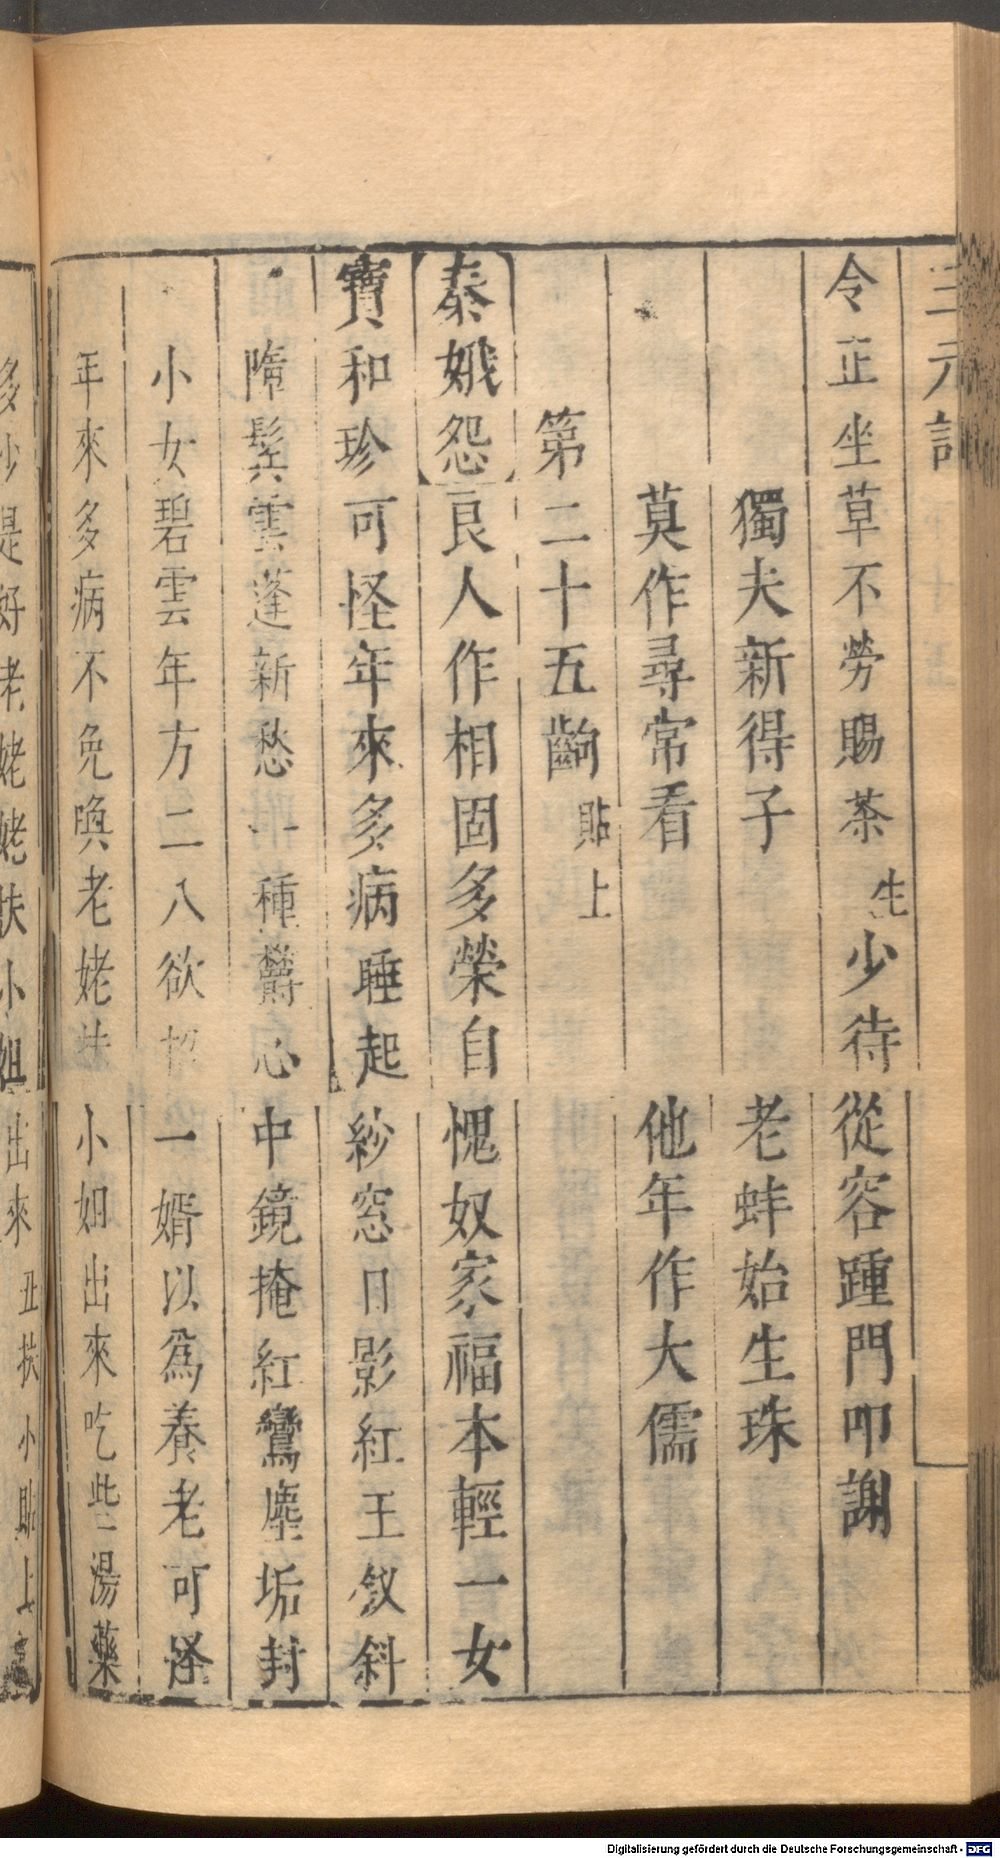 三元記
令正坐草不勞賜茶生少待從容踵門叩謝
獨夫新得子 老蚌始生珠
莫作尋常看 他年作大儒
第二十五齣貼上
秦娥怨良人作相固多榮自愧奴家福本輕一女
寶和珍可怪年來多病睡起紗窓日影紅玉釵斜
隋鬂雲蓬新愁一種欝心中鏡掩紅鸞塵垢封
小女碧雲年方二八欲招一婿以為養老可怪
年來多病不免喚老姥扶小姐出來吃些湯藥
多少是好老姥姥扶小姐出來丑扶小貼上
Digitalisierung gefördert durch die Deutsche Forschungsgemeinschaft - DFG